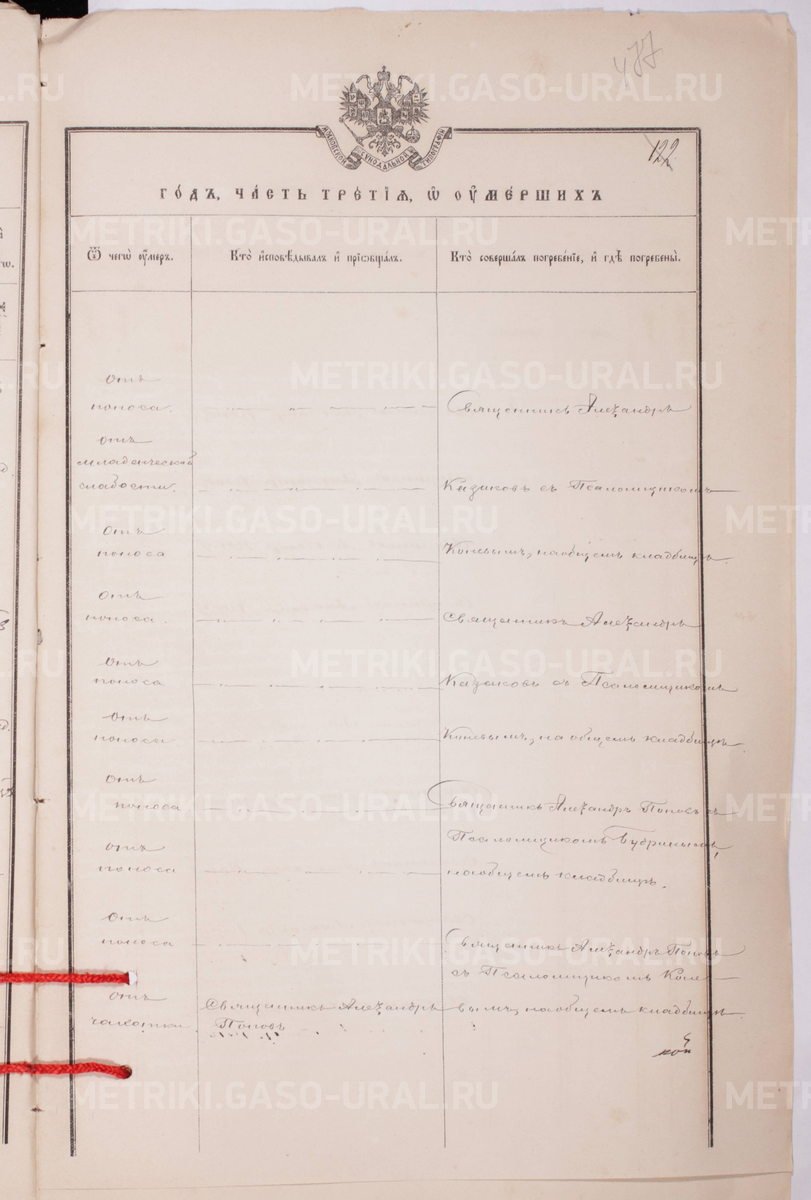 477
122
МОСКОВСКОЙ СѴНОДАЛЬНОЙ ТИПОГРАФІИ
ГО́ДЪ, ЧА́СТЬ ТРЕ́ТІѦ, Ѡ҆ ОУ҆МЕ́РШИХЪ
Ѿ чегѡ̀ оу҆́меръ.
Кто̀ и҆сповѣ́дывалъ и҆ прїѡбща́лъ.
Кто̀ соверша́лъ погребе́нїе, и҆ гдѣ̀ погребены̀.
отъ
поноса.
Священникъ Александръ
отъ
младенческой
слабости.
Казаковъ съ Псаломщикомъ
отъ
поноса
Коневымъ, на общемъ кладбищѣ.
отъ
поноса.
Священникъ Александръ
отъ
поноса
Казаковъ съ Псаломщикомъ
отъ
поноса
Коневымъ, на общемъ кладбищѣ.
отъ
поноса
Священникъ Александръ Поповъ съ
отъ
Псаломщикомъ Бубринымъ,
поноса
на общемъ кладбищѣ.
отъ
поноса
Священникъ Александръ Поповъ
съ Псаломщикомъ Коне-
отъ
чахотки
Священникъ Александръ
Поповъ
вымъ, на общемъ кладбищѣ.
кой
METRIKI.GASO-URAL.RU